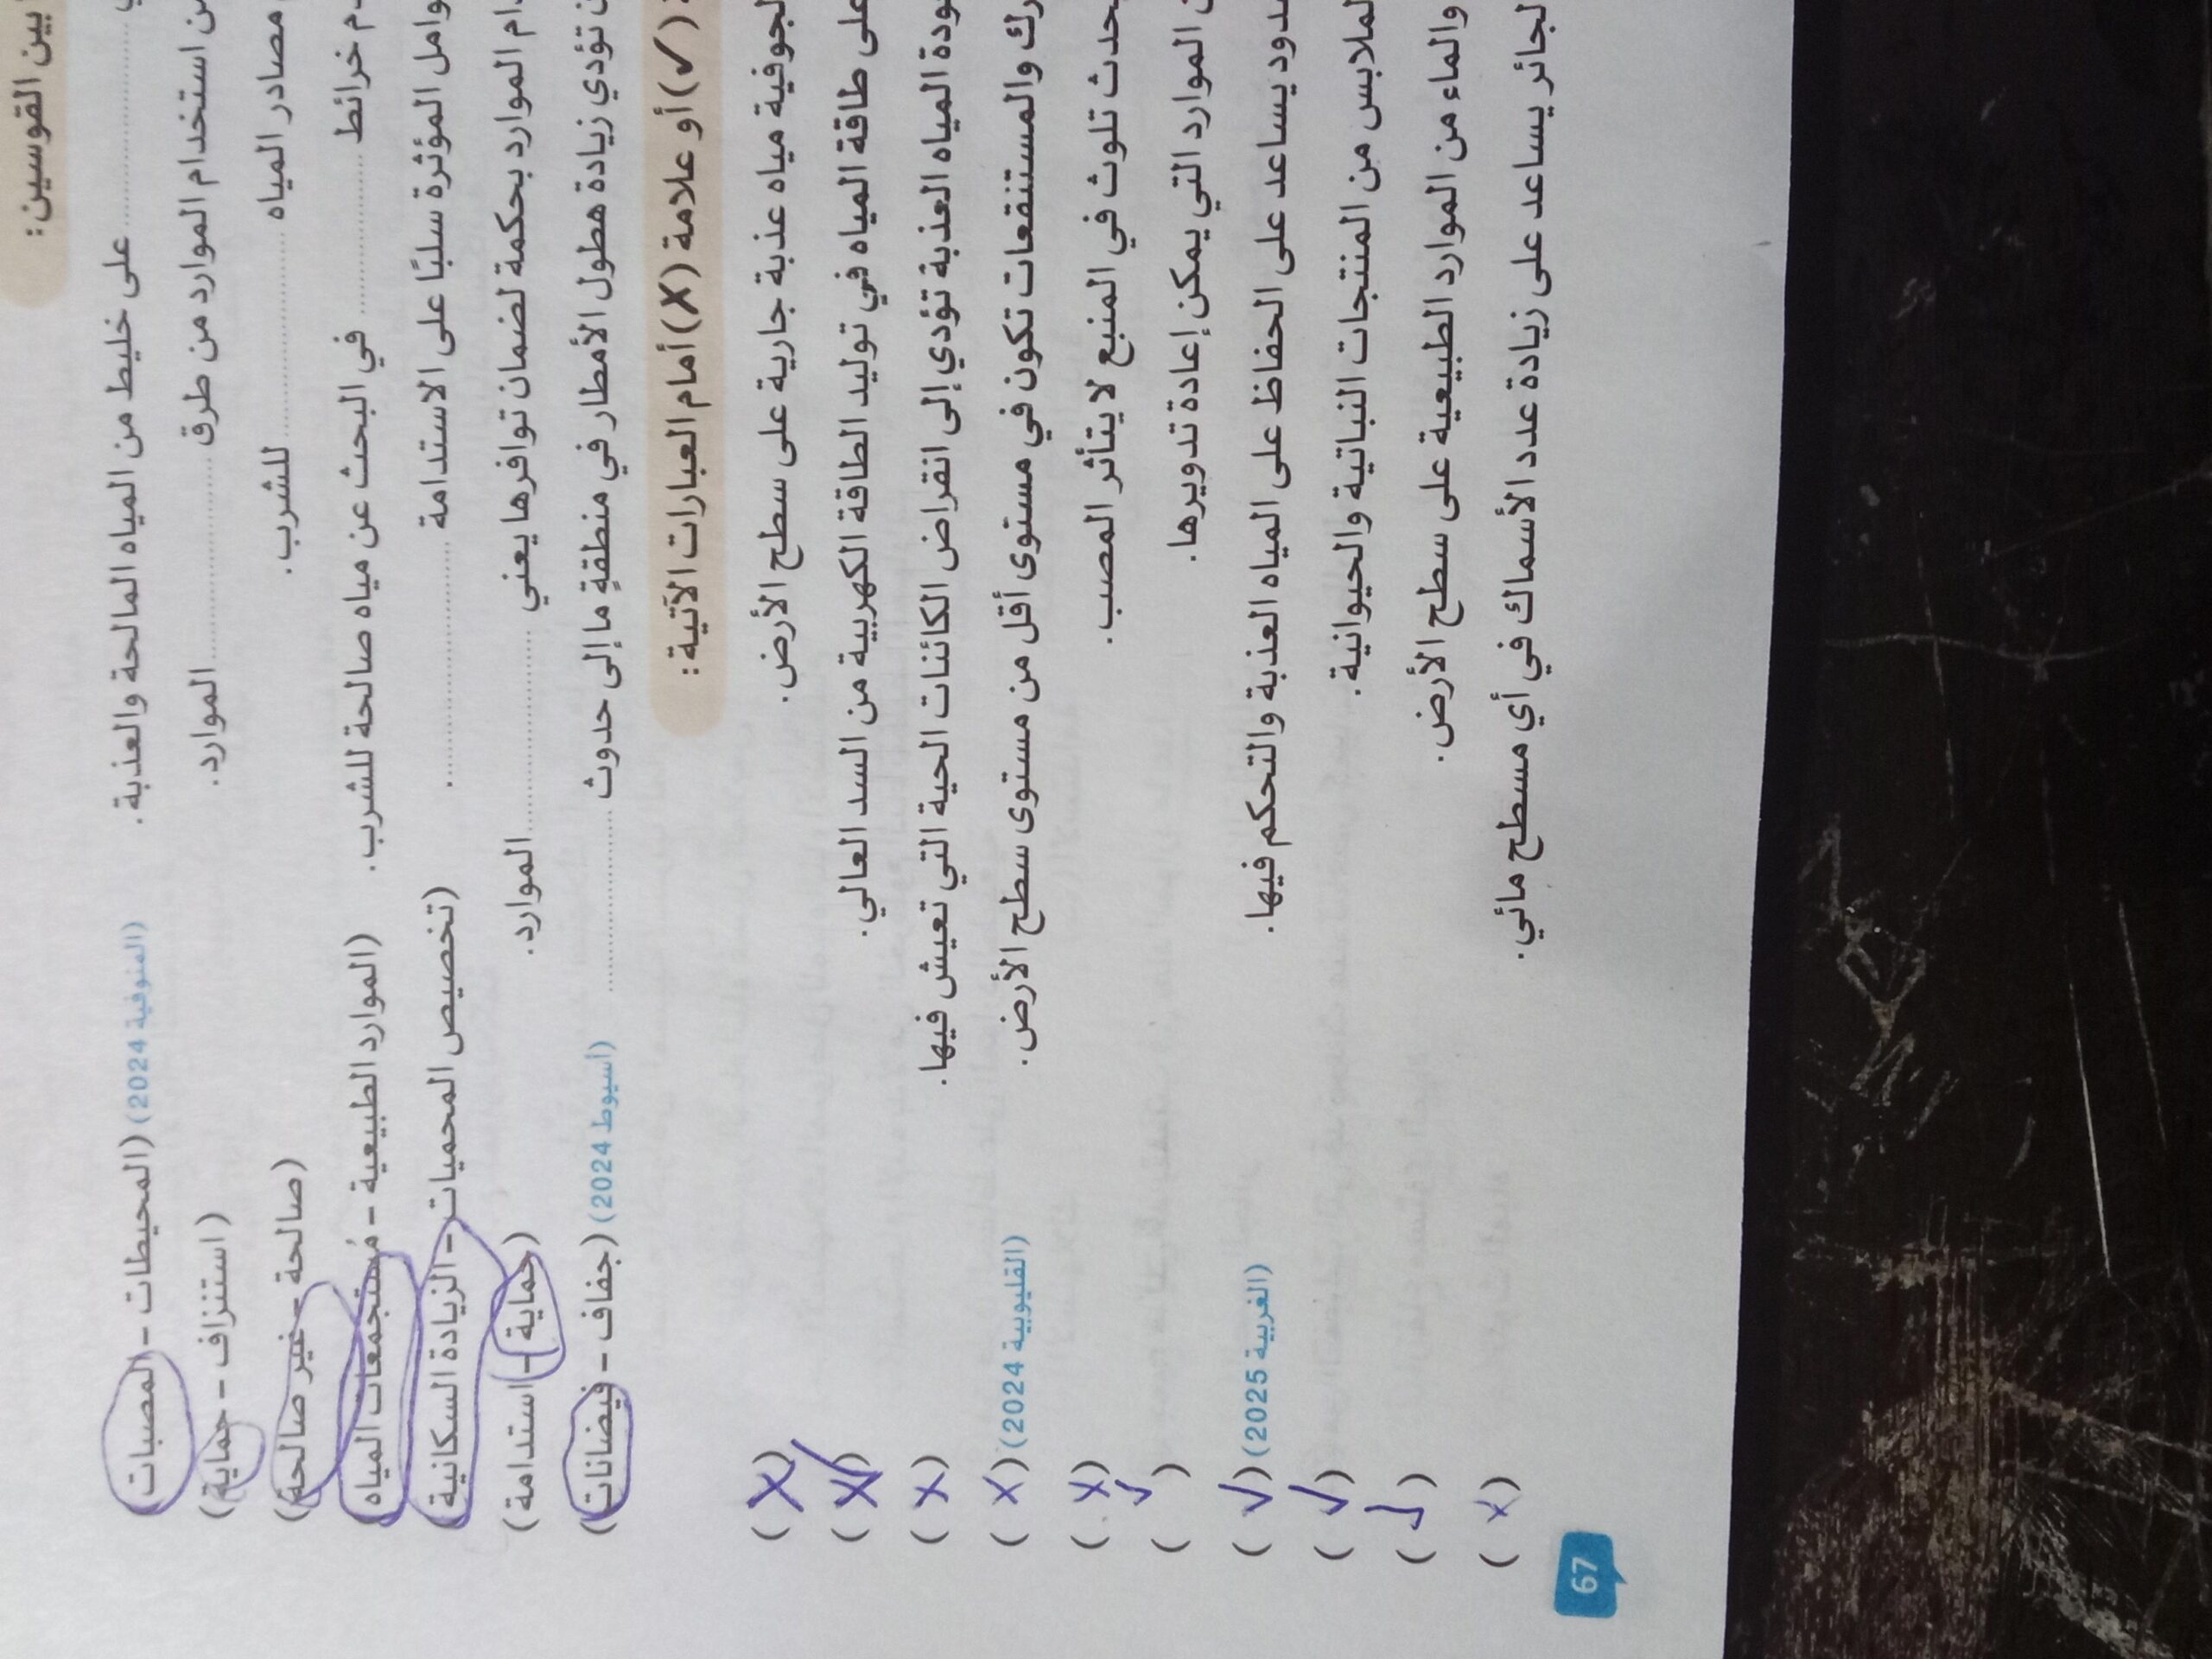 بين القوسين:
على خليط من المياه المالحة والعذبة. (المنوفية 2024) (المحيطات - المصبات)
استخدام الموارد من طرق .......... الموارد. (استنزاف - حماية)
مصادر المياه .......... للشرب. (صالحة - غير صالحة)
خرائط .......... في البحث عن مياه صالحة للشرب. (الموارد الطبيعية - مُستجمعات المياه)
المؤثرة سلبًا على الاستدامة .......... . (تخصيص المحميات - الزيادة السكانية)
الموارد بحكمة لضمان توافرها يعني .......... الموارد. (حماية - استدامة)
تؤدي زيادة هطول الأمطار في منطقةٍ ما إلى حدوث .......... (أسيوط 2024) (جفاف - فيضانات)
(✓) أو علامة (✗) أمام العبارات الآتية:
الجوفية مياه عذبة جارية على سطح الأرض. (X)
على طاقة المياه في توليد الطاقة الكهربية من السد العالي. (✓)
المياه العذبة تؤدي إلى انقراض الكائنات الحية التي تعيش فيها. (X)
والمستنقعات تكون في مستوى أقل من مستوى سطح الأرض. (القليوبية 2024) (X)
تلوث في المنبع لا يتأثر المصب. (X)
الموارد التي يمكن إعادة تدويرها. (✓)
يساعد على الحفاظ على المياه العذبة والتحكم فيها. (الغربية 2025) (✓)
الملابس من المنتجات النباتية والحيوانية. (✓)
والماء من الموارد الطبيعية على سطح الأرض. (✓)
يساعد على زيادة عدد الأسماك في أي مسطح مائي. (X)
67